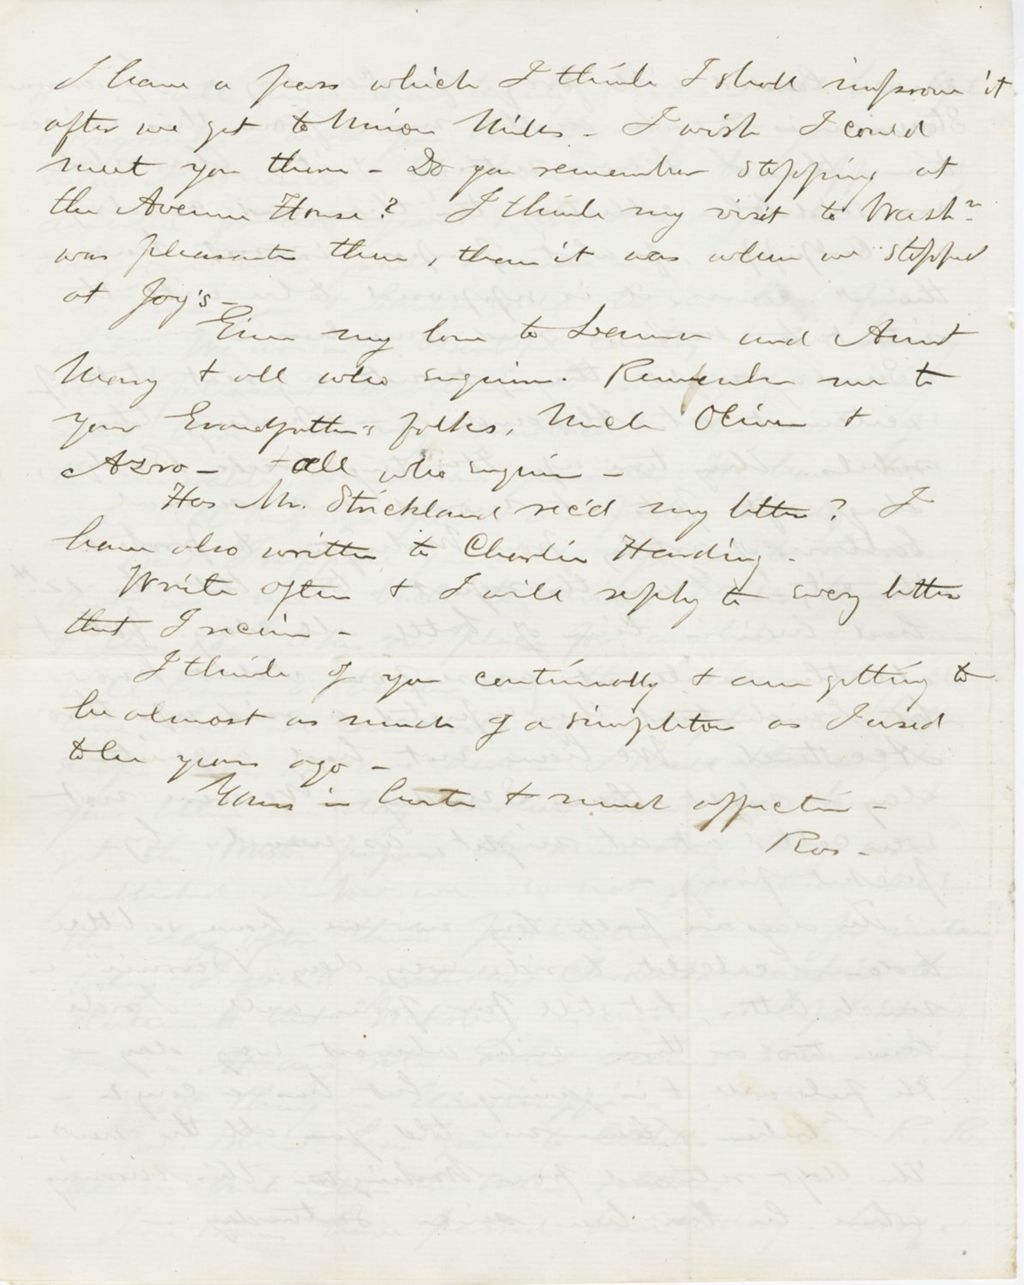 I have a pass which I think I shall improve it
after we get to Union Mills - I wish I could
meet you there - Do you remember stopping at
the Avenue House? I think my visit to Washn.
was pleasanter then, than it was when we stopped
at Joy's -
Give my love to and Aunt
Mary & all who enquire. Remember me to
your Grandfather's folks, Uncle Oliver &
Azro - & all who enquire -
Has Mr. Strickland rec'd my letter? I
have also written to Charlie Harding.
Write often & I will reply to every letter
that I receive -
I think of you continually & am getting to
be almost as much of a simpleton as I used
to be years ago -
Yours in haste & much affection -
Ros -